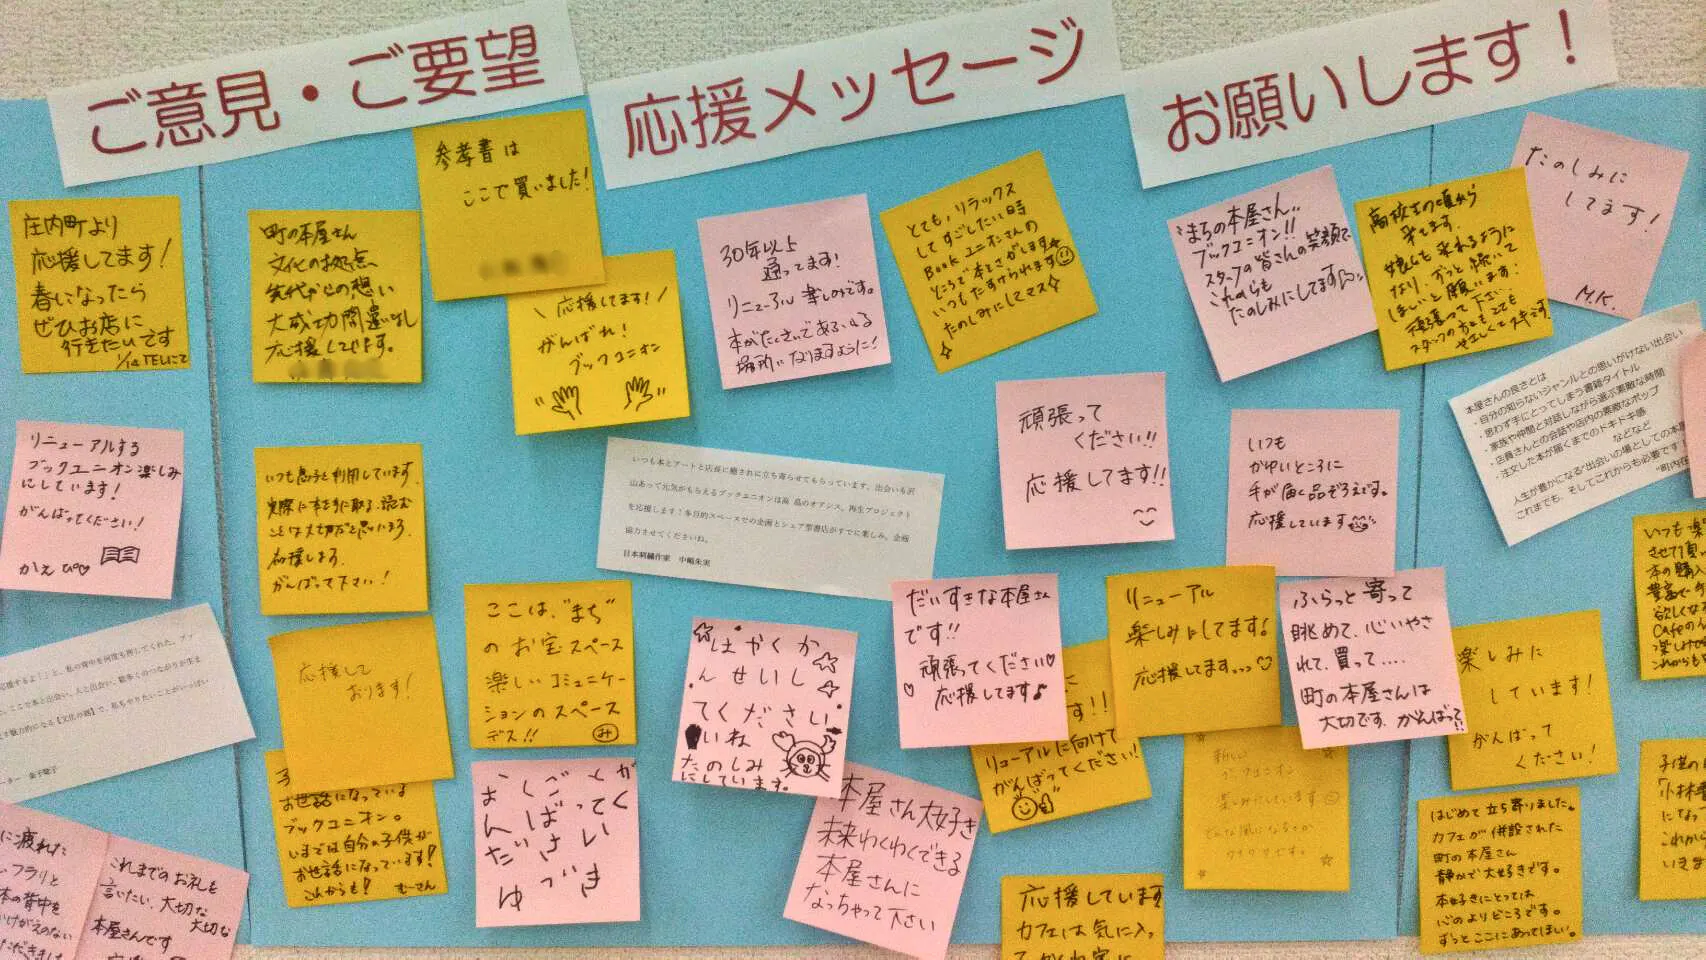 ご意見・ご要望
応援メッセージ
お願いします！
庄内町より
応援してます！
春になったら
ぜひお店に
行きたいです
町の本屋さん
文化の拠点、
先代からの想い
大成功間違いなし
応援してます。
参考書は
ここで買いました！
\ 応援してます！ /
がんばれ！
ブックユニオン
30年以上
通ってます！
リニューアル楽しみです。
本がたくさんであふれる
場所になりますように！
とても、リラックス
してすごしたい時
Book ユニオンさんの
ところで本をさがします
いつもたすけられます
たのしみにしてマス☆
まちの本屋さん、
ブックユニオン!!
スタッフの皆さんの笑顔で、
これからも
たのしみにしてます
高校生の頃から
来てます。
娘らも来れるように
なり、ずっと続いて
ほしいと願います！
頑張って下さい。
たのしみに
してます！
M.K.
リニューアルする
ブックユニオン楽しみ
にしています！
がんばってください！
かえぴ♡
いつも息子と利用しています。
実際に本を手に取る、読む
ことは大切だと思います。
応援します。
がんばって下さい！
いつも本とアートと店長に癒されに立ち寄らせてもらっています。出会いも沢
山あって元気がもらえるブックユニオンは高畠のオアシス。再生プロジェクト
を応援します！多目的スペースでの企画とシェア型書店がすでに楽しみ。企画
協力させてくださいね。
日本刺繍作家　中嶋朱実
頑張って
ください!!
応援してます!!
いつも
かゆいところに
手が届く品ぞろえです。
応援しています
本屋さんの良さとは
・自分の知らないジャンルとの思いがけない出会い
・思わず手にとってしまう書籍タイトル
・家族や仲間と対話しながら選ぶ素敵な時間
・店員さんとの会話や店内の素敵なポップ
・注文した本が届くまでのドキドキ感
などなど
人生が豊かになる"出会いの場としての本屋
これまでも、そしてこれからも必要です
"町内在
応援しております！
ここは、"まち"
のお宝スペース
楽しいコミュニケー
ションのスペース
デス!! み
はやくか
んせいし
てください
いね
たのしみ
にしています。
だいすきな本屋さん
です!!
頑張ってください♡
♡ 応援してます♪
リニューアル
楽しみにしてます！
応援してます
ふらっと寄って
眺めて、心いやさ
れて、買って....
町の本屋さんは
大切です。がんばって!!
楽しみに
しています！
がんばって
ください！
す!!
リニューアルに向けて
がんばってください！
お世話になっている
ブックユニオン。
いまでは自分の子供が
お世話になっています！
これからも！ むーさん
本屋さん大好き
未来わくわくできる
本屋さんに
なっちゃって下さい
新しい
ブックユニオン
楽しみにしています
応援しています
カフェは気に入っ
はじめて立ち寄りました。
カフェが併設された
町の本屋さん
静かで大好きです。
本好きにとっては
心のよりどころです。
ずっとここにあってほしい。
に疲れた
フラリと
本の背中を
これまでのお礼を
言いたい、大切な
大切な
本屋さんです